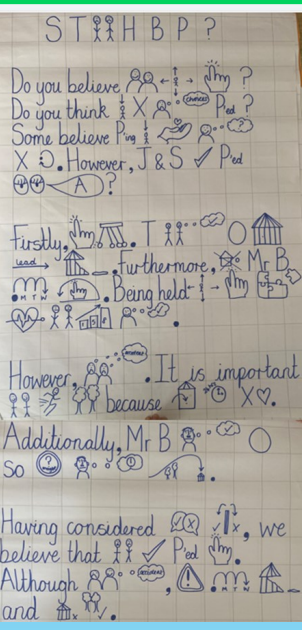 STHBP?
Do you believe ?
Do you think X chances P.ed ?
Some believe P.ing ?
X . However, J & S P.ed
A ?
Firstly, . T
Lead . Furthermore, Mr B
M T W . Being held
.
However, . It is important
because X .
Additionally, Mr B
So .
Having considered X X , we
believe that P.ed .
Although , ! M T W
and X .